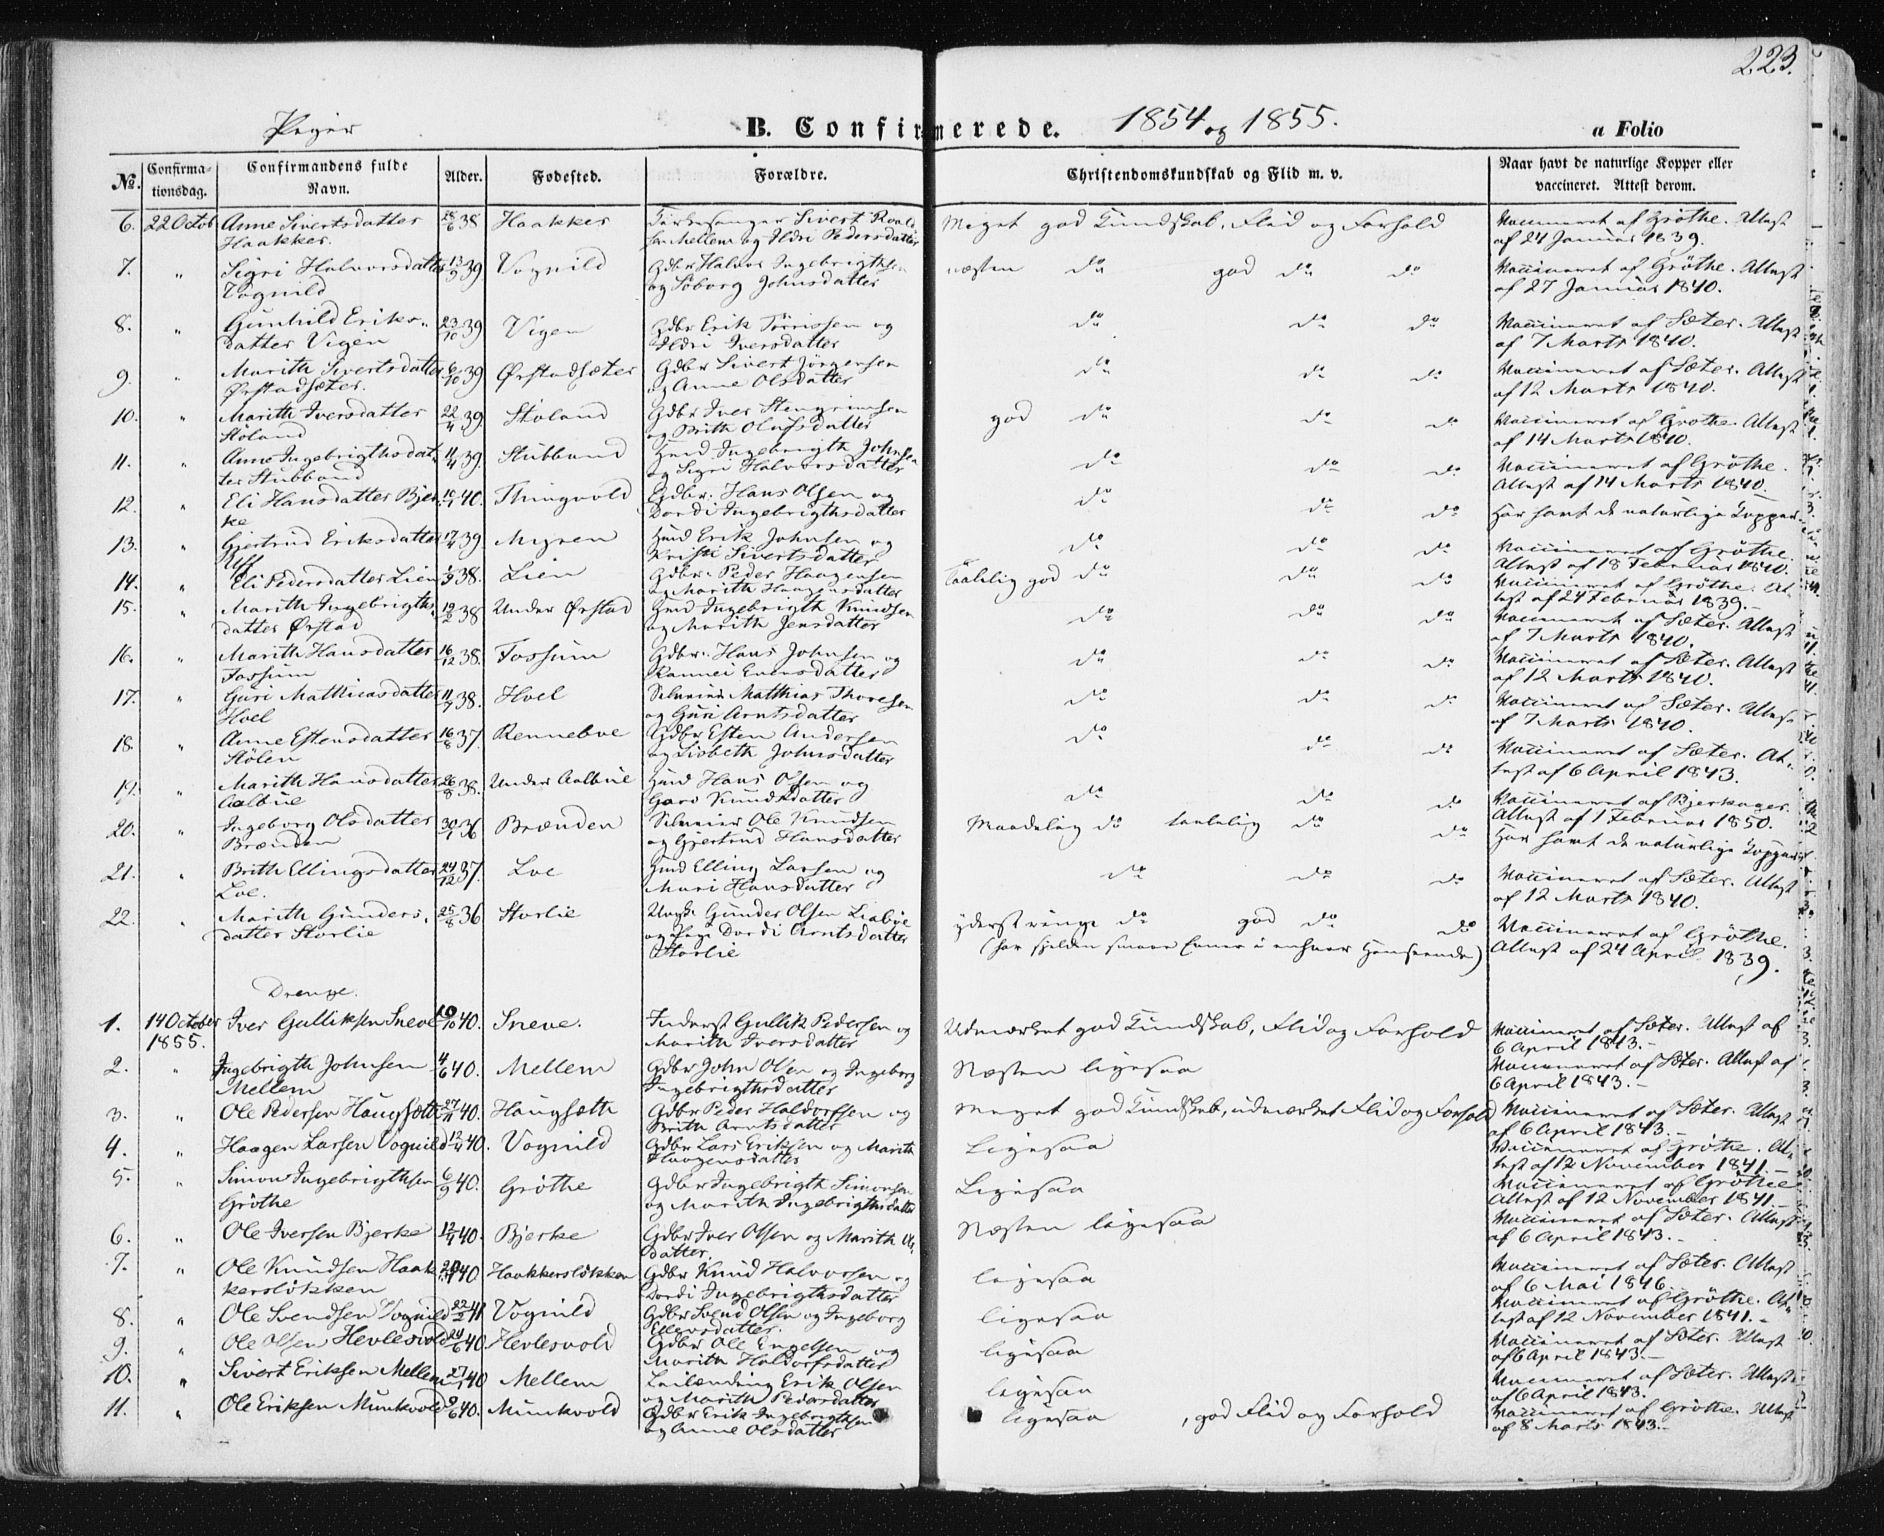 223.
Piger B. Confirmerede. 1854 og 1855. a Folio
№. Confirmationsdag. Confirmandens fulde Navn. Alder. Fødested. Forældre. Christendomskundskab og Flid m. v. Naar havt de naturlige Kopper eller vaccineret. Attest derom.
6. 22 Octob Anne Sivertsdatter Haakker. 28/6 38 Haakker Kirkesanger Sivert Roald- sen Mellem og Ildri Pedersdatter Meget god Kundskab, Flid og Forhold Vaccineret af Grøthe. Attest af 24 Januar 1839.
7. " Sigri Halvorsdatter Vognild 13/9 39 Vognild Gdbr Halvor Ingebrigthsen og Siborg Johnsdatter næsten do god do do Vaccineret af Grøthe. Attest af 27 Januar 1840.
8. " Gunhild Eriksdatter Vigen 23/10 39 Vigen Gdbr Erik Tørrissen og Ildri Iversdatter do do do Vaccineret af Sæter. Attest af 7 Marts 1840.
9. " Marith Sivertsdatter Ørstadsæter. 6/10 39 Ørstadsæter Gdbr Sivert Jörgensen og Anne Olsdatter do do do Vaccineret af Sæter. Attest af 12 Marts 1840.
10. " Marith Iversdatter Støland 22/4 39 Støland Gdbr Iver Stengrimsen og Brith Olufsdatter god do do do Vaccineret af Grøthe. Attest af 14 Marts 1840.
11. " Anne Ingebrigthsdatter Stubband 11/4 39. Stubband Huusmd Ingebrigth Johnsen og Sigri Halvorsdatter do do do Vaccineret af Grøthe. Attest af 14 Marts 1840.
12. " Eli Hansdatter Bjerke 40. Thingvold Gdbr. Hans Olsen og Dordi Ingebrigthsdatter do do do Har havt de naturlige Kopper
13. " Gjertrud Eriksdatter 17/4 39 Myren Huusmd Erik Johnsen og Kristi Sivertsdatter do do do Vaccineret af Grøthe. Attest af 18 Februar 1840.
14. " Eli Pedersdatter Lien 38. Lien Gdbr. Peder Haagensen og Marith Haagensdatter Taalelig god do do do Vaccineret af Grøthe. Attest af 24 Februar 1839.
15. " Marith Ingebrigthsdatter Ørstad 19/2 38 Under Ørstad Huusmd Ingebrigth Knudsen og Marith Jensdatter do do do Vaccineret af Sæter. Attest af 7 Marts 1840.
16. " Marith Hansdatter Fossum 16/12 38. Fossum Gdbr. Hans Johnsen og Rannei Evensdatter do do do Vaccineret af Sæter. Attest af 12 Marts 1840.
17. " Guri Matthiasdatter Hoel 11/7 38. Hoel Selveier Matthias Thoresen og Guri Arntsdatter do do do Vaccineret af Sæter. Attest af 7 Marts 1840.
18. " Anne Estensdatter Stølen 16/8 37. Rennebue Gdbr Esten Andersen og Lisbeth Johnsdatter do do do Vaccineret af Sæter. Attest af 6 April 1843.
19. " Marith Hansdatter Aalbue 26/8 38. Under Aalbue Huusmd Hans Olsen og Guro Knudsdatter do do do Vaccineret af Bjerkager. Attest af 1 Februar 1850.
20. " Ingeborg Olsdatter Brænden 30/1 36 Brænden Selveier Ole Knudsen og Gjertrud Hansdatter Maadelig do taalelig do do Har havt de naturlige Kopper
21. " Brith Ellingsdatter Loe. 24/12 37. Loe Huusmd Elling Larsen og Mari Hansdatter do do do Vaccineret af Sæter. Attest af 12 Marts 1840.
22. " Marith Gundersdatter Storlie 25/8 36 Storlie Ungk. Gunder Olsen Liabøe og Pige Dordi Arntsdatter Storlie yderst ringe do god do do Vaccineret af Grøthe. Attest af 24 April 1839.
Drenge.
1. 14 October 1855. Iver Gulliksen Sneve 10/10 40. Sneve. Inderst Gullik Pedersen og Marith Iversdatter Udmærket god Kundskab, Flid og Forhold Vaccineret af Sæter. Attest af 6 April 1843.
2. " Ingebrigth Johnsen Mellem 4/6 40. Mellem Gdbr John Olsen og Ingeborg Ingebrigthsdatter Næsten ligesaa Vaccineret af Sæter. Attest af 6 April 1843.
3. " Ole Pedersen Haugsæth 40. Haugsæth Gdbr Peder Haldorssen og Brith Arntsdatter Meget god Kundskab, udmærket Flid og Forhold Vaccineret af Sæter. Attest af 6 April 1843.
4. " Haagen Larsen Vognild 40. Vognild Gdbr Lars Eriksen og Marith Haagensdatter Ligesaa Vaccineret af Grøthe. Attest af 12 November 1841.
5. " Simon Ingebrigthsen Grøthe 6/9 40. Grøthe Gdbr Ingebrigth Simonsen og Marith Ingebrigthsdatter Ligesaa Vaccineret af Grøthe Attest af 12 November 1841.
6. " Ole Iversen Bjerke 40 Bjerke Gdbr Iver Olsen og Marith Olsdatter. Næsten ligesaa Vaccineret af Sæter. Attest af 6 April 1843.
7. " Ole Knudsen Haakkersløkken 40 Haakkersløkken Gdbr Knud Halvorsen og Dordi Ingebrigthsdatter ligesaa Vaccineret af Sæter. Attest af 6 Mai 1846.
8. " Ole Svendsen Vognild 22/2 41 Vognild Gdbr Svend Olsen og Ingeborg Ellevsdatter. ligesaa Vaccineret af Grøthe. Attest af 12 November 1841.
9. " Ole Olsen Hevlesvold 24/6 40. Hevlesvold Gdbr Ole Engelsen og Marith Haldorsdatter ligesaa Vaccineret af Sæter. Attest af 6 April 1843.
10. " Sivert Eriksen Mellem 40 Mellem Leilænding Erik Olsen og Marith Pedersdatter ligesaa Vaccineret af Sæter. Attest af 6 April 1843.
11. " Ole Eriksen Munkvold 9/6 40. Munkvold Gdbr Erik Ingebrigthsen og Anne Olsdatter ligesaa, god Flid og Forhold Vaccineret af Grøthe. Attest af 8 Marts 1843.